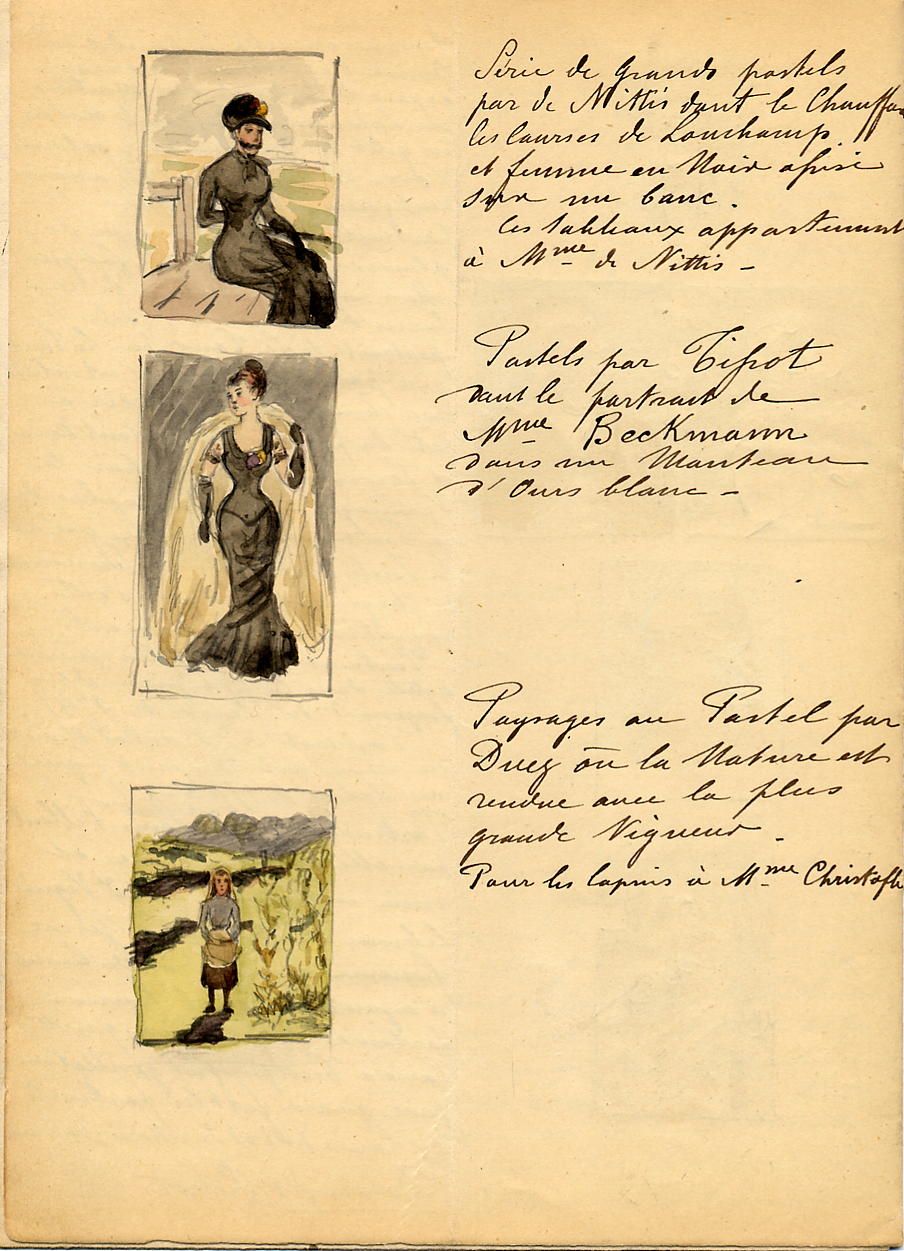 Série de grands pastels
par de Nittis dont le Chauffa
les Courses de Lonchamp
et femme en Noir assise
sur un banc.
Ces tableaux appartennent
à Mme de Nittis -
Pastels par Tissot
dont le portrait de
Mme Beckmann
dans un Manteau
d'Ours blanc -
Paysages au Pastel par
Duez où la Nature est
rendue avec la plus
grande Vigueur -
Pour les lapins à Mme Christofle